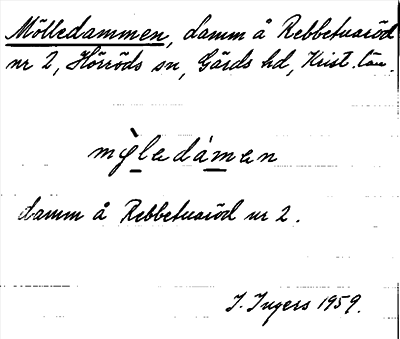 Mölledammen, damm å Rebbetuaröd
nr 2, Hörröds sn, Gärds hd, Krist. län.
mø̀ledámen
damm å Rebbetuaröd nr 2.
I. Ingers 1959.